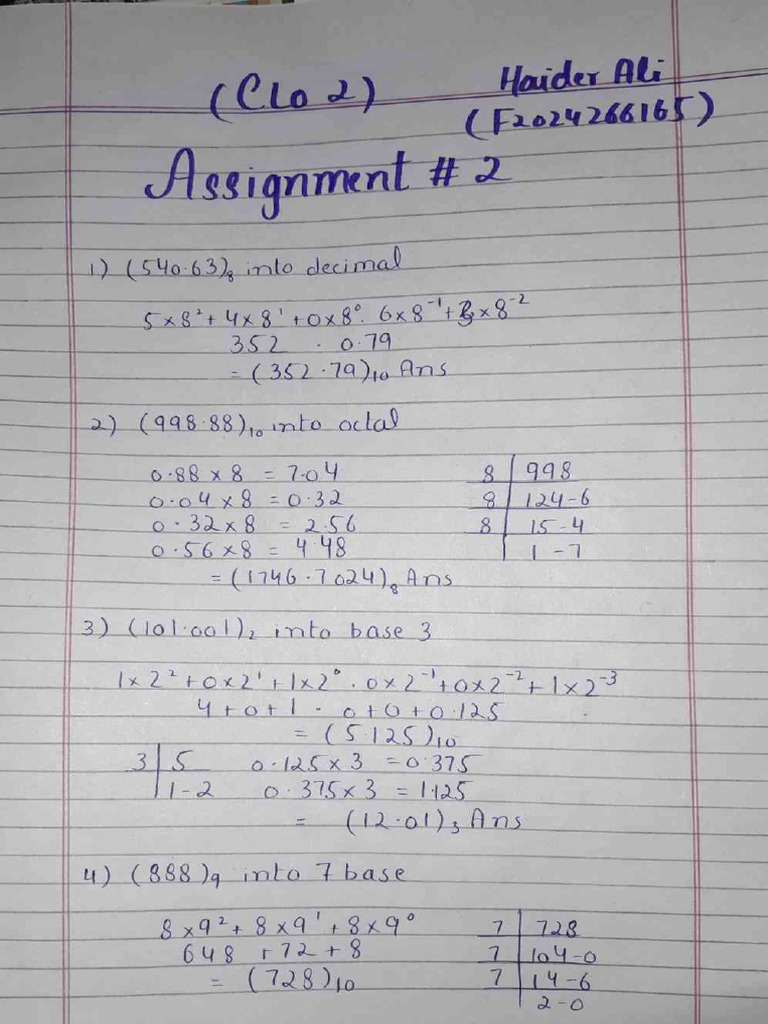 (Clo 2) Haider Ali
(F2024266165)
Assignment # 2
1) (540.63)₈ into decimal
5×8²+4×8¹+0×8⁰. 6×8⁻¹+3×8⁻²
352 . 0.79
= (352.79)₁₀ Ans
2) (998.88)₁₀ into octal
0.88 × 8 = 7.04 8 | 998
0.04 × 8 = 0.32 8 | 124-6
0.32 × 8 = 2.56 8 | 15-4
0.56 × 8 = 4.48 | 1-7
= (1746.7024)₈ Ans
3) (101.001)₂ into base 3
1×2²+0×2¹+1×2⁰.0×2⁻¹+0×2⁻²+1×2⁻³
4+0+1 . 0+0+0.125
= (5.125)₁₀
3 | 5 0.125×3 = 0.375
| 1-2 0.375×3 = 1.125
= (12.01)₃ Ans
4) (888)₉ into 7 base
8×9²+8×9¹+8×9⁰ 7 | 728
648 +72+8 7 | 104-0
= (728)₁₀ 7 | 14-6
2-0